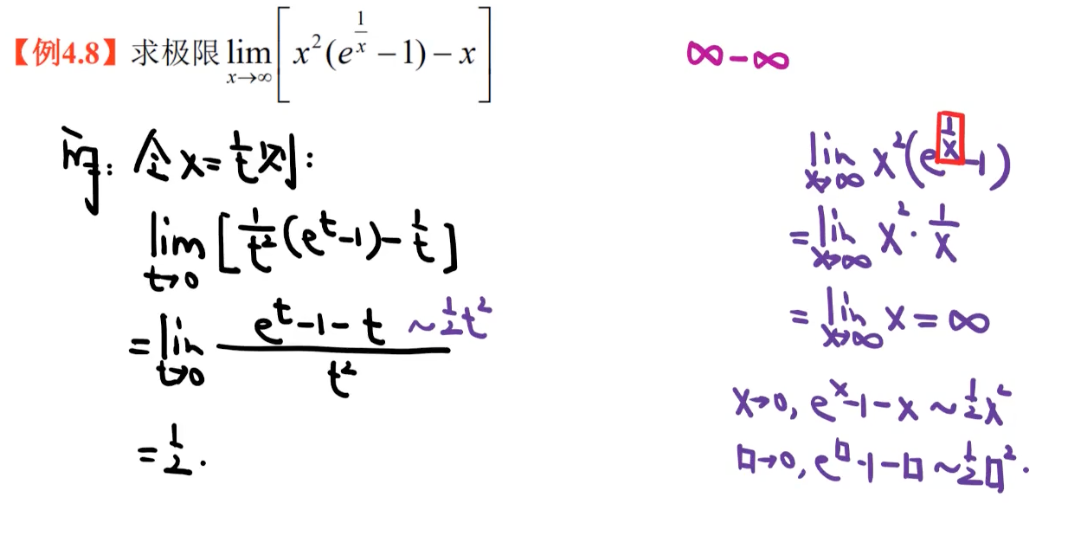 【例4.8】求极限 lim_{x→∞} [x²(e^{1/x} − 1) − x]
∞ − ∞
解: 令 x = 1/t 则:
lim_{t→0} [1/t² (e^t − 1) − 1/t]
= lim_{t→0} (e^t − 1 − t)/t² ~ 1/2 t²
= 1/2.
lim_{x→∞} x²(e^{1/x} − 1)
= lim_{x→∞} x² · 1/x
= lim_{x→∞} x = ∞
x→0, e^x − 1 − x ~ 1/2 x²
□→0, e^□ − 1 − □ ~ 1/2 □².